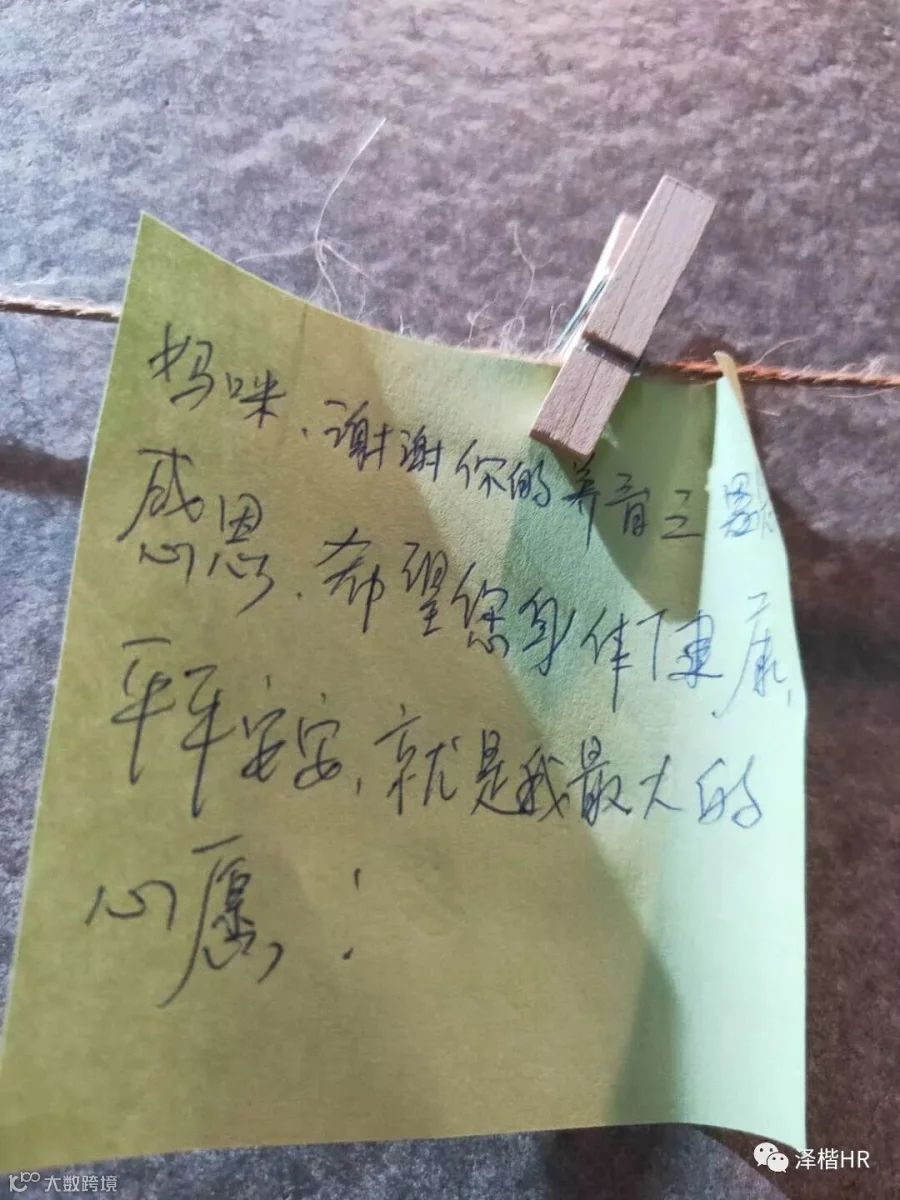 妈咪、谢谢你的养育之恩
感恩、希望您身体健康,
平平安安,就是我最大的
心愿!
泽楷HR
大数跨境